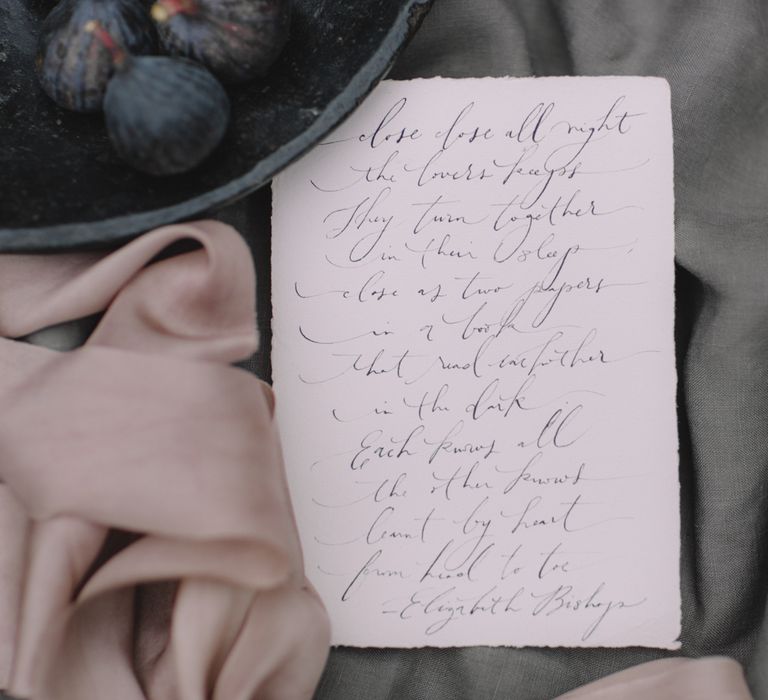 close close all night
the lovers keeps
They turn together
in their sleep
close as two papers
in a book
that read eachother
in the dark.
Each knows all
the other knows
learnt by heart
from head to toe
- Elizabeth Bishop